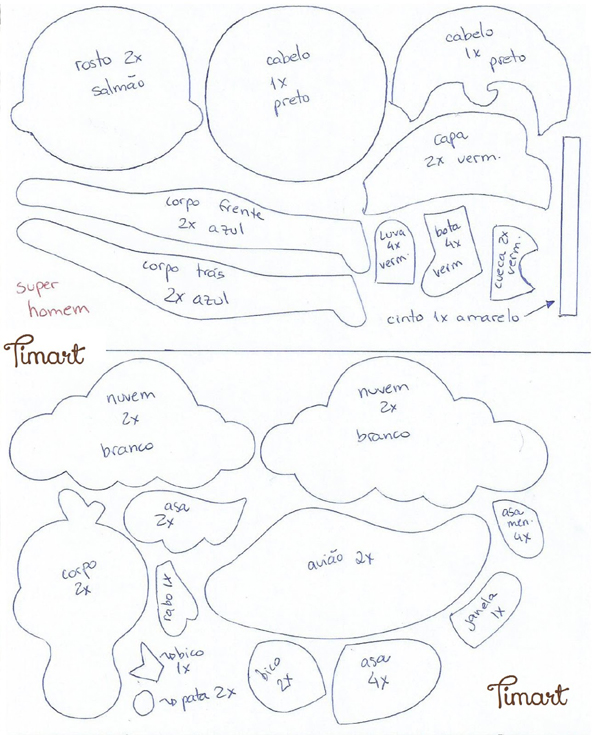 rosto 2x
salmão
cabelo
1x
preto
cabelo
1x
preto
capa
2x verm.
corpo frente
2x azul
corpo trás
2x azul
luva
4x
verm.
bota
4x
verm
cueca 2x
verm.
cinto 1x amarelo
super
homem
Timart
nuvem
2x
branco
nuvem
2x
branco
asa
2x
asa
men.
4x
corpo
2x
rabo 1x
avião 2x
janela
1x
bico
1x
pata 2x
bico
2x
asa
4x
Timart